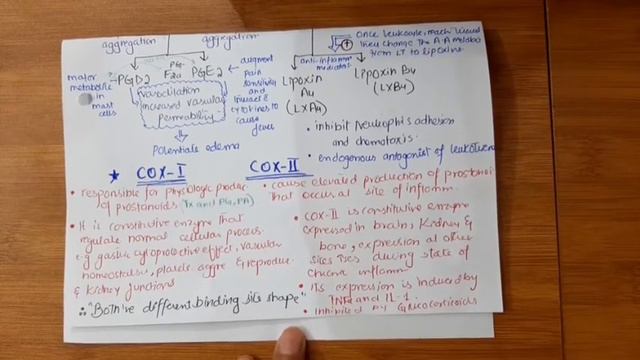 aggregation
aggregation
Once leukocyte reach
they change the A.A metabo
from LT to Lipoxins
anti-inflamm
mediators
PG-
F2α
PGD2
PGE2
major
metabolite
in
mast
cells
augment
pain
sensitivity
and
cytokines to
cause
fever
Vasodilation
increased vascular
Permeability
Potentiates edema
Lipoxin
A4
(LXA4)
Lipoxin B4
(LXB4)
• inhibit Neutrophils adhesion
and chemotaxis.
• endogenous antagonist of leukotriene
★ COX-I
COX-II
• responsible for physiologic produc
of prostanoids (Tx and PGs, PA)
• It is constitutive enzyme that
regulate normal cellular process
e.g gastric cytoprotective effect, vascular
homeostasis, platele aggre & reproduc
& Kidney functions
• cause elevated production of prostanoi
that occurs at site of inflamm.
• COX-II is constitutive enzyme
expressed in brain, Kidney &
bone, expression at other
sites rises during state of
chronic inflamm
• its expression is induced by
TNFα and IL-1.
• Inhibited by Glucocorticoids
∴ "Both're different binding site shape"